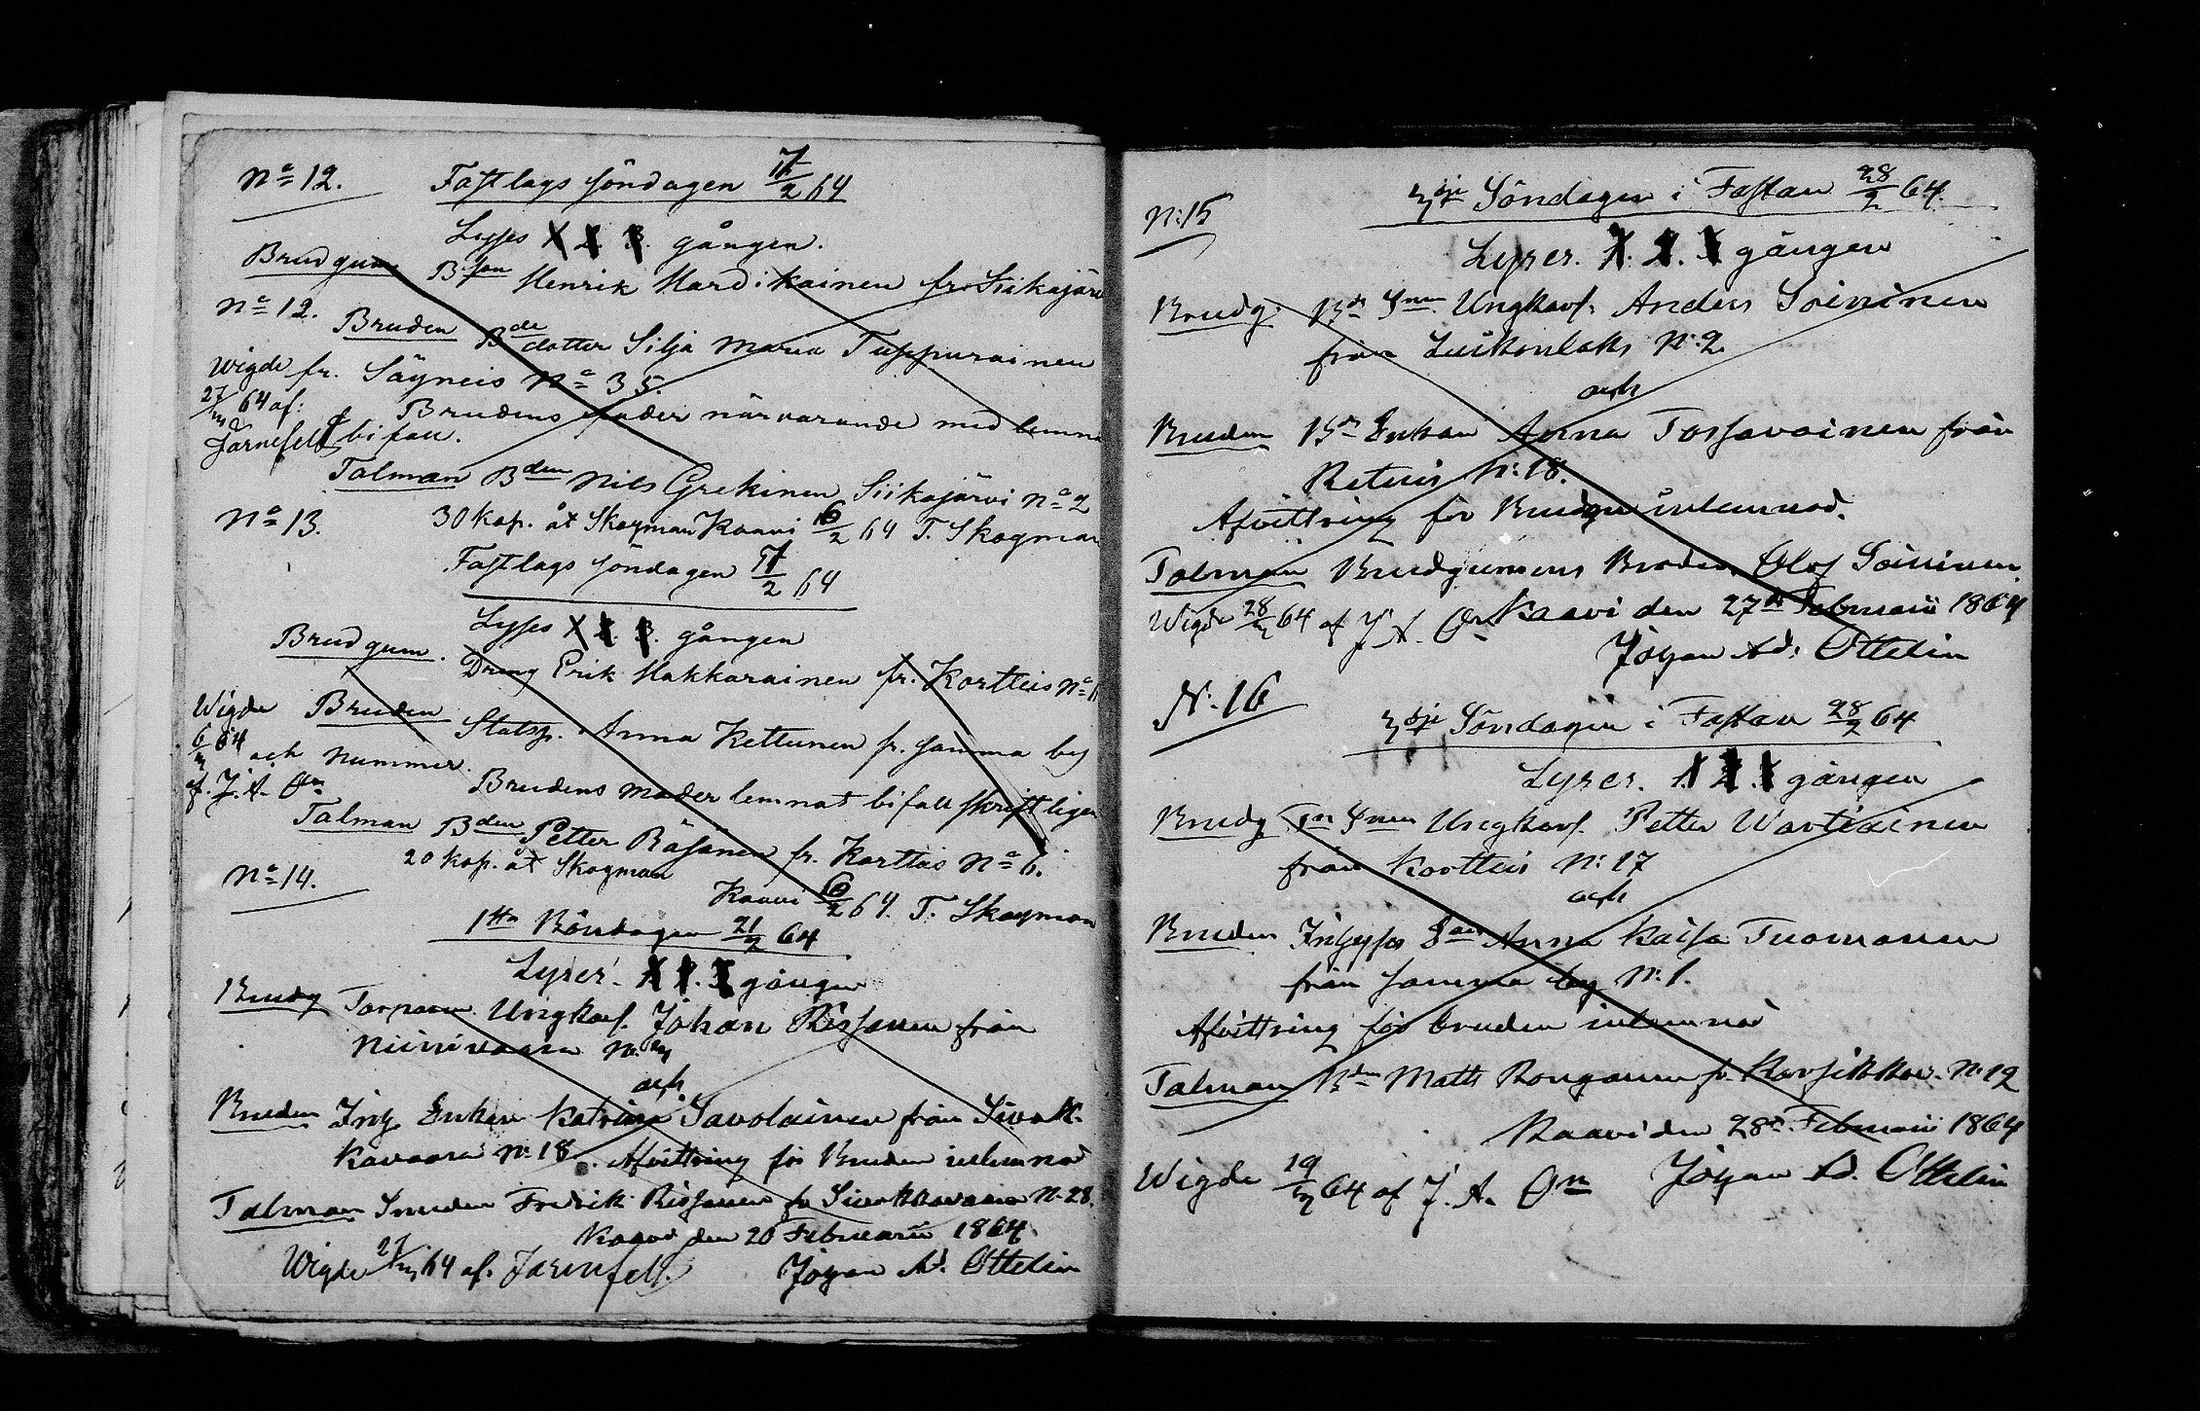 No 12. Fastlags söndagen 7/2 64
Lyses 1. 2. 3. gången.
Brudgum B.son Henrik Hardikainen fr. Siikajärv
No 12. Bruden Bde dotter Silja Maria Tuppurainen
Wigde fr. Säyneis No 35.
27/3 64 af: Brudens fader närvarande med lemna
Järnefelt bifall.
Talman Bden Nils Grekinen Siikajärvi No 2
No 13. 30 kop. åt Skogman Kaavi 6/2 64 T. Skogman
Fastlags söndagen 7/2 64
Lyses 1. 2. 3. gången
Brudgum. Dreng Erik Hakkarainen fr. Kortteis No
Wigde Bruden Statsp. Anna Kettunen fr. samma by
6/3 64 och nummer.
af. J. A. On Brudens moder lemnat bifall skriftligen
Talman Bden Petter Räsänen fr. Korttis No 6.
20 kop. åt Skogman
No 14. Kaavi 6/2 64. T. Skogman
1sta Böndagen 21/2 64
Lyses. 1. 2. 3 gången
Brudg Torparen Ungkarl. Johan Rissanen från
Niinivaara No. 3
och
Bruden Inh. Enkan Katrina Savolainen från Sivak-
kavaara No. 18. Afvittring för Bruden inlemnad
Talman Smeden Fredrik Rissanen fr Sivakkavaara N. 28.
Kaavi den 20 Februarii 1864.
Wigde 27/3 64 af. Järnefelt. Johan Ad. Ottelin
N: 15 3dje Söndagen i Fastan 28/2 64.
Lyses. 1. 2. 3 gången
Brudg. Bd Snn. Ungkarl. Anders Soininen
från Luikonlaks N: 2.
och
Bruden Bd Enkan Anna Tossavainen från
Retuis N: 18.
Afvittring för Brudgn inlemnad.
Talman Brudgumens Broder Olof Soininen.
Wigde 28/3 64 af J. A. On Kaavi den 27de Februarii 1864
Johan Ad: Ottelin
N: 16
3dje Söndagen i Fastan 28/2 64
Lyses. 1. 2. 3 gången
Brudg Tn Snn Ungkarl. Petter Wartiainen
från Kortteis N: 17
och
Bruden Inhyses Dar Anna Kaisa Tuomainen
från samma by N: 1.
Afvittring för bruden inlemnad
Talman Bdn Matts Rongainen fr. Karsikko N: 12
Kaavi den 28de Februarii 1864
Wigde 19/3 64 af J. A. On Johan Ad. Ottelin